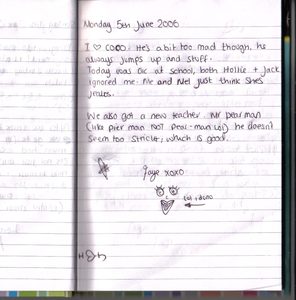 Monday 5th June 2006
I ♡ COCO. He's a bit too mad though, he
always jumps up and stuff.
Today was ok at school, both Hollie + Jack
ignored me. Me and Mel just think she's
jealous.
We also got a new teacher. Mr pearman
(like pier man NOT pear-man lol) he doesn't
seem too strict, which is good.
Jaye xoxo
lol i dono